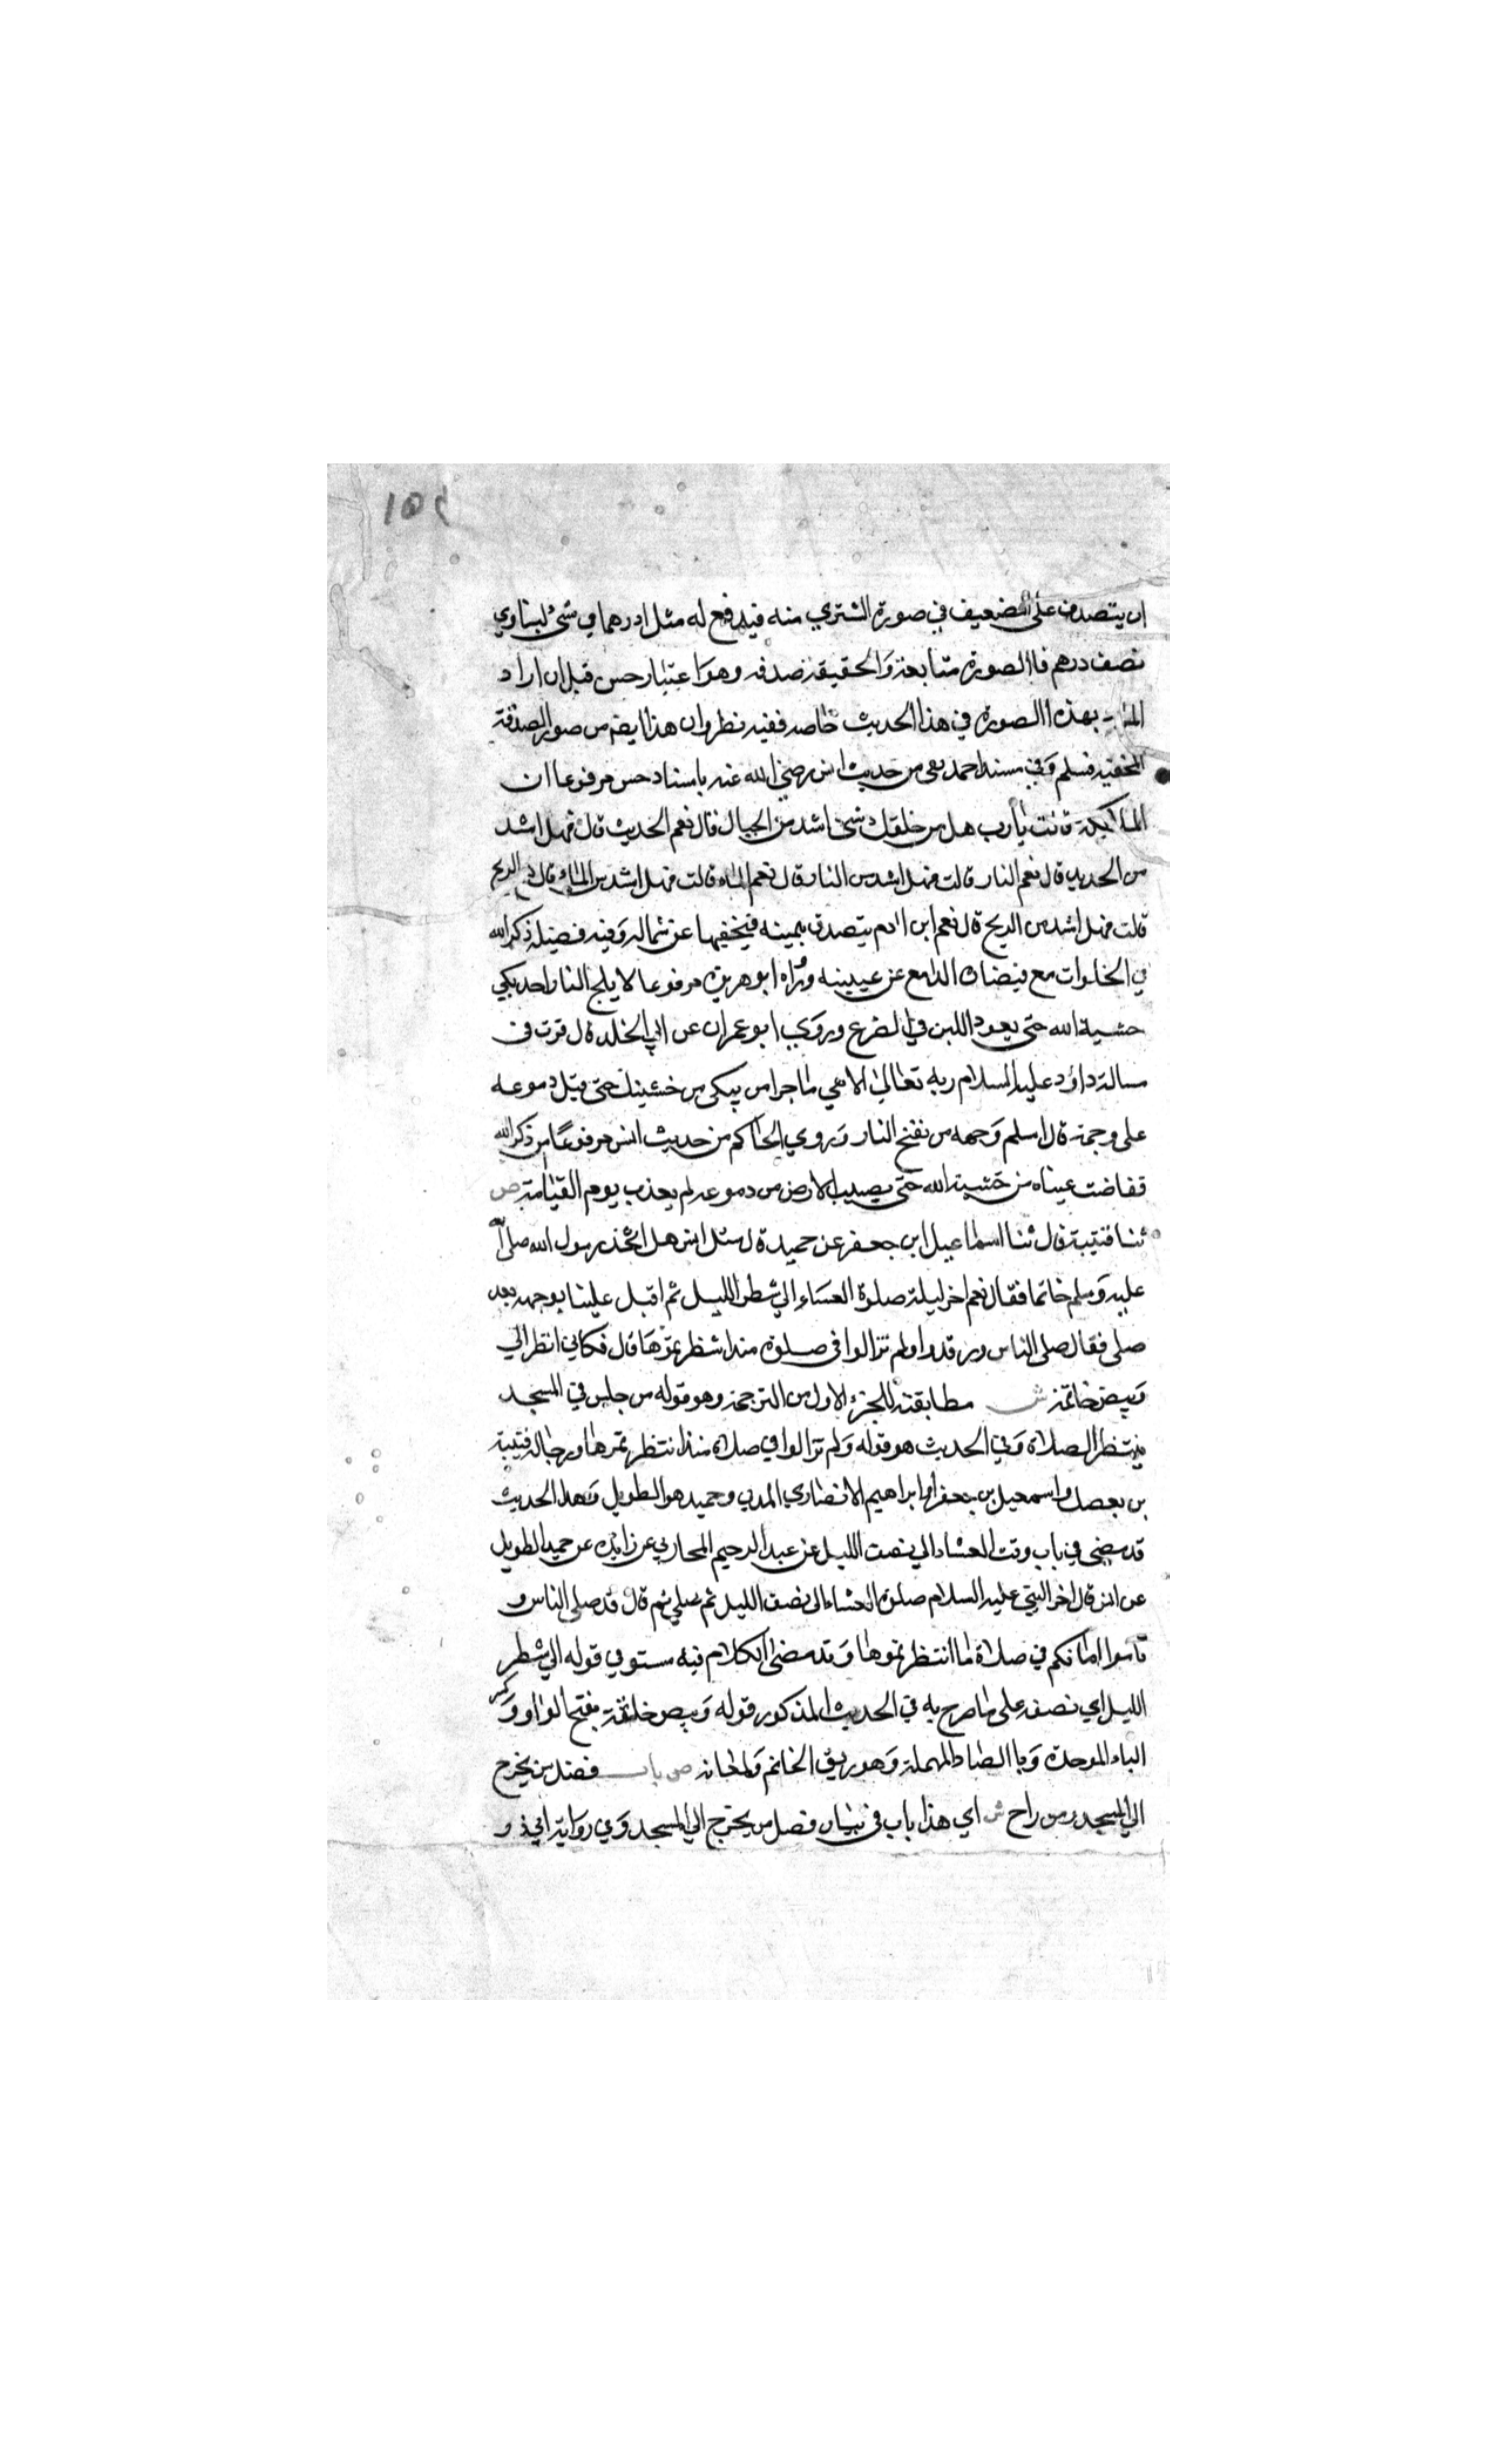 ١٥٤
ان يتصدق على الضعيف في صورة المشتري منه فيدفع له مثلا درهما في شئ يساوي
نصف درهم فا الصورة متابعة والحقيقة صدقه وهو اعتبار حسن قيل ان اراد
بهذه الصورة في هذا الحديث خاصه ففيه نظر وان هذا ايضا من صور الصدقة
المخفيه فسلم وفي مسند احمد من حديث انس رضي الله عنه باسناد حسن مرفوعا ان
الملائكة قالت يارب هل من خلقك شئ اشد من الجبال قال نعم الحديث قال فهل اشد
من الحديد قال نعم النار قالت فهل اشد من النار قال نعم الماء قالت فهل اشد من الماء قال نعم الريح
قلت فهل اشد من الريح قال نعم ابن ادم يتصدق بيمينه فيخفيها عن شماله وفيه فضيلة ذكر الله
في الخلوات مع فيضان الدامع عن عيينه ابو هريرة مرفوعا لا يلج النار احد بكي
خشية الله حتى يعود اللبن في الضرع وروي ابو عمران عن ابي الخلد قال قرت في
مسالة داؤد عليه السلام ربه تعالى الاهي ما جزا من يبكي من خشيتك حتى دموعه
على وجهه قال اسلم وجهه من نفح النار وروي الحاكم من حديث انس مرفوعا من ذكر الله
ففاضت عيناه من خشية الله حتى يصيب الارض من دموعه لم يعذب يوم القيامة ص
ثنا قتيبة قال ثنا اسماعيل ابن جعفر عن حميد قال سئل انس هل اتخذ رسول الله صلى الله
عليه وسلم خاتما فقال نعم اخر ليلة صلوة العشاء الي شطر الليل ثم اقبل علينا بوجهه بعد
صلى فقال صلى الناس ورقدوا ولم تزالوا في صلوة منذ قال فكاني انظر الي
وبيص خاتمه ش مطابقته للجزء الاول من الترجمة وهو قوله من جلس في المسجد
ينتظر الصلاة وفي الحديث هو قوله ولم تزالوا في صلاة منذ ورجاله قتيبة
بن واسمعيل بن جعفر ابراهيم الانصاري المدني وحميد هو الطويل وهذا الحديث
قد مضى في باب وقت العشاء الي نصف الليل عن عبد الرحيم المحاربي عن زايدة عن حميد الطويل
عن انس قال اخر النبي عليه السلام صلوة العشاء الى نصف الليل ثم صلي ثم قال قد صلى الناس و
ناموا اما انكم في صلاة ما انتظرتموها وقد مضى الكلام فيه مستوفي قوله الي شطر
الليل اي نصفه على ما صرح به في الحديث المذكور قوله وبيص خاتمه بفتح الواو وكسر
الباء الموحدة وبا الصاد المهملة وهو بريق الخاتم ولمعانه ص باب فضل من يخرج
الي المسجد ومن راح ش اي هذا باب في بيان فضل من يخرج الي المسجد وفي رواية ابي ذر